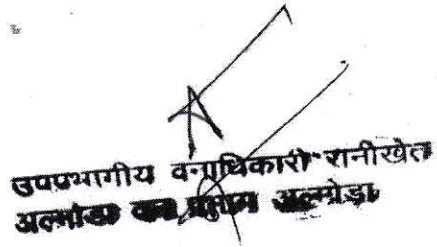 उपप्रभागीय वनाधिकारी रानीखेत
अल्मोडा वन प्रभाग अल्मोड़ा